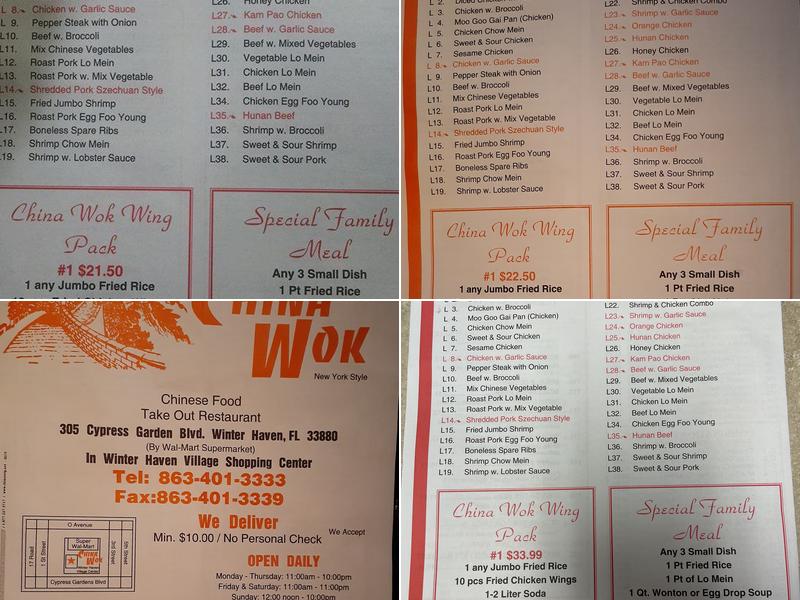 L 8. Chicken w. Garlic Sauce
L 9. Pepper Steak with Onion
L10. Beef w. Broccoli
L11. Mix Chinese Vegetables
L12. Roast Pork Lo Mein
L13. Roast Pork w. Mix Vegetable
L14. Shredded Pork Szechuan Style
L15. Fried Jumbo Shrimp
L16. Roast Pork Egg Foo Young
L17. Boneless Spare Ribs
L18. Shrimp Chow Mein
L19. Shrimp w. Lobster Sauce
L26. Honey Chicken
L27. Kam Pao Chicken
L28. Beef w. Garlic Sauce
L29. Beef w. Mixed Vegetables
L30. Vegetable Lo Mein
L31. Chicken Lo Mein
L32. Beef Lo Mein
L34. Chicken Egg Foo Young
L35. Hunan Beef
L36. Shrimp w. Broccoli
L37. Sweet & Sour Shrimp
L38. Sweet & Sour Pork
China Wok Wing
Pack
#1 $21.50
1 any Jumbo Fried Rice
Special Family
Meal
Any 3 Small Dish
1 Pt Fried Rice
L 2. Diced Chicken
L 3. Chicken w. Broccoli
L 4. Moo Goo Gai Pan (Chicken)
L 5. Chicken Chow Mein
L 6. Sweet & Sour Chicken
L 7. Sesame Chicken
L 8. Chicken w. Garlic Sauce
L 9. Pepper Steak with Onion
L10. Beef w. Broccoli
L11. Mix Chinese Vegetables
L12. Roast Pork Lo Mein
L13. Roast Pork w. Mix Vegetable
L14. Shredded Pork Szechuan Style
L15. Fried Jumbo Shrimp
L16. Roast Pork Egg Foo Young
L17. Boneless Spare Ribs
L18. Shrimp Chow Mein
L19. Shrimp w. Lobster Sauce
L22. Shrimp & Chicken Combo
L23. Shrimp w. Garlic Sauce
L24. Orange Chicken
L25. Hunan Chicken
L26. Honey Chicken
L27. Kam Pao Chicken
L28. Beef w. Garlic Sauce
L29. Beef w. Mixed Vegetables
L30. Vegetable Lo Mein
L31. Chicken Lo Mein
L32. Beef Lo Mein
L34. Chicken Egg Foo Young
L35. Hunan Beef
L36. Shrimp w. Broccoli
L37. Sweet & Sour Shrimp
L38. Sweet & Sour Pork
China Wok Wing
Pack
#1 $22.50
1 any Jumbo Fried Rice
Special Family
Meal
Any 3 Small Dish
1 Pt Fried Rice
CHINA
WOK
New York Style
Chinese Food
Take Out Restaurant
305 Cypress Garden Blvd. Winter Haven, FL 33880
(By Wal-Mart Supermarket)
In Winter Haven Village Shopping Center
Tel: 863-401-3333
Fax:863-401-3339
We Deliver
Min. $10.00 / No Personal Check
We Accept
OPEN DAILY
Monday - Thursday: 11:00am - 10:00pm
Friday & Saturday: 11:00am - 10:30pm
Sunday: 12:00 noon - 10:00pm
O Avenue
17 Road
1 St Street
Super
Wal-Mart
CHINA
WOK
Winter Haven
Village Center
3rd Street
5th Street
Cypress Gardens Blvd
L 3. Chicken w. Broccoli
L 4. Moo Goo Gai Pan (Chicken)
L 5. Chicken Chow Mein
L 6. Sweet & Sour Chicken
L 7. Sesame Chicken
L 8. Chicken w. Garlic Sauce
L 9. Pepper Steak with Onion
L10. Beef w. Broccoli
L11. Mix Chinese Vegetables
L12. Roast Pork Lo Mein
L13. Roast Pork w. Mix Vegetable
L14. Shredded Pork Szechuan Style
L15. Fried Jumbo Shrimp
L16. Roast Pork Egg Foo Young
L17. Boneless Spare Ribs
L18. Shrimp Chow Mein
L19. Shrimp w. Lobster Sauce
L22. Shrimp & Chicken Combo
L23. Shrimp w. Garlic Sauce
L24. Orange Chicken
L25. Hunan Chicken
L26. Honey Chicken
L27. Kam Pao Chicken
L28. Beef w. Garlic Sauce
L29. Beef w. Mixed Vegetables
L30. Vegetable Lo Mein
L31. Chicken Lo Mein
L32. Beef Lo Mein
L34. Chicken Egg Foo Young
L35. Hunan Beef
L36. Shrimp w. Broccoli
L37. Sweet & Sour Shrimp
L38. Sweet & Sour Pork
China Wok Wing
Pack
#1 $33.99
1 any Jumbo Fried Rice
10 pcs Fried Chicken Wings
1-2 Liter Soda
Special Family
Meal
Any 3 Small Dish
1 Pt Fried Rice
1 Pt of Lo Mein
1 Qt. Wonton or Egg Drop Soup